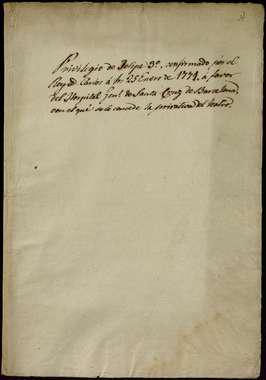 Privilegio de Felipe 3º, confirmado por el
Rey Dn Carlos á los 25 Enero de 1771, á favor
del Hospital Genl de Santa Cruz de Barcelona,
con el qué se le concede la privativa del teatro.